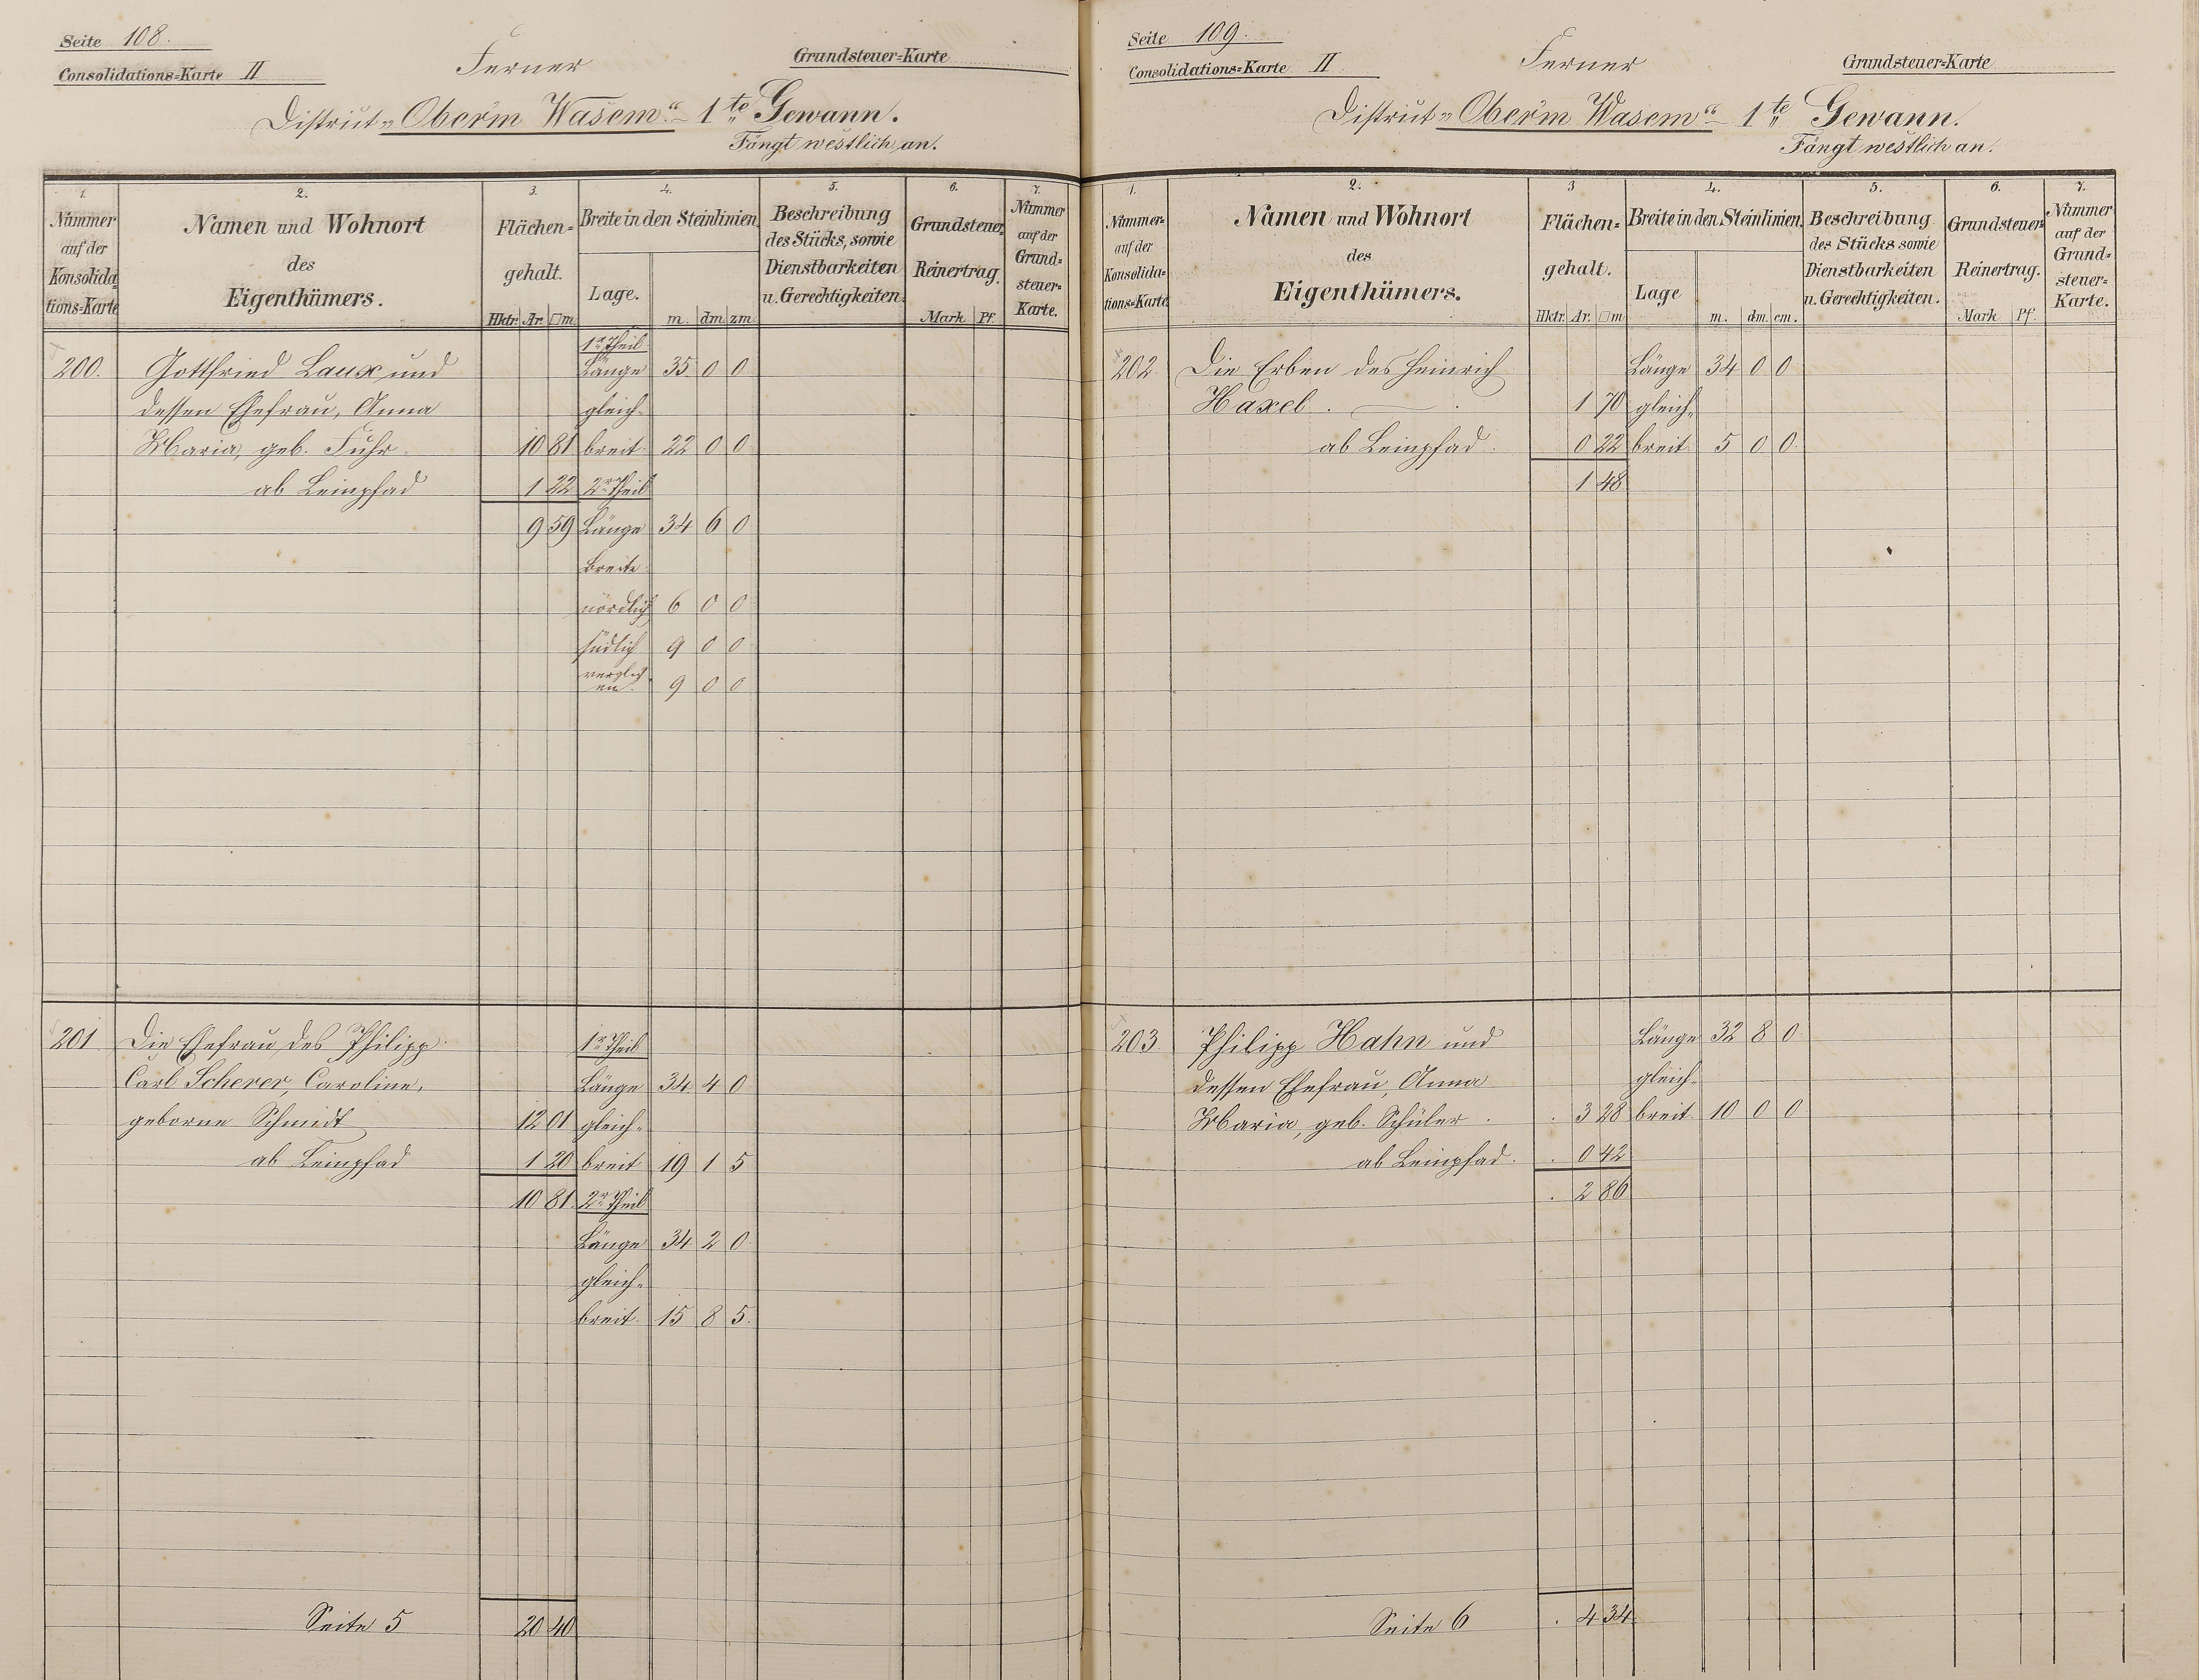 Seite 108.
Consolidations=Karte II
Ferner
Grundsteuer=Karte
District „Ober'm Wasem“ 1te Gewann.
Fängt westlich an.
1. 2. 3. 4. 5. 6. 7.
Nummer auf der Konsolidations=Karte
Namen und Wohnort des Eigenthümers.
Flächen=gehalt.
Hktr. Ar. □m
Breite in den Steinlinien
Lage.
m. dm zm
Beschreibung des Stücks, sowie Dienstbarkeiten u. Gerechtigkeiten.
Grundsteuer Reinertrag.
Mark. Pf.
Nummer auf der Grund=steuer=Karte.
1r Theil
200. Gottfried Laux und Länge 35 0 0
dessen Ehefrau, Anna gleich=
Maria, geb. Fuhr. 10 81 breit 22 0 0
ab Leinpfad 1 22 2r Theil
9 59 Länge 34 6 0
Breite
nördlich 6 0 0
südlich 9 0 0
verglich
en 9 0 0
201 Die Ehefrau des Philipp 1r Theil
Carl Scherer, Caroline, Länge 34 4 0
geborne Schmidt 12 01 gleich=
ab Leinpfad 1 20 breit 19 1 5
10 81 2r Theil
Länge 34 2 0
gleich=
breit 15 8 5
Seite 5 20 40
Seite 109.
Consolidations=Karte II
Ferner
Grundsteuer=Karte
District „Ober'm Wasem“ 1te Gewann.
Fängt westlich an.
1. 2. 3 4. 5. 6. 7.
Nummer auf der Konsolida=tions=Karte
Namen und Wohnort des Eigenthümers.
Flächen=gehalt.
Hktr. Ar. □m
Breite in den Steinlinien
Lage
m. dm. cm.
Beschreibung des Stücks sowie Dienstbarkeiten u. Gerechtigkeiten.
Grundsteuer= Reinertrag.
Mark Pf.
Nummer auf der Grund=steuer=Karte.
202. Die Erben des Heinrich Länge 34 0 0
Haxel. 1 70 gleich=
ab Leinpfad 0 22 breit 5 0 0
1 48
203. Philipp Hahn und Länge 32 8 0
dessen Ehefrau, Anna gleich=
Maria, geb. Schüler 3 28 breit 10 0 0
ab Leinpfad 0 42
2 86
Seite 6 4 34